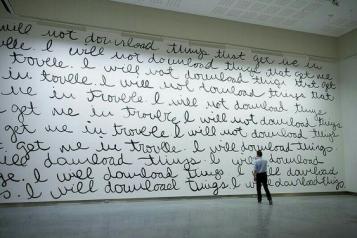 I will not download things that get me in
trouble. I will not download things that get me
in trouble. I will not download things that get
me in trouble. I will not download things that
get me in trouble. I will not download things
get me in trouble. I will not download things
me in trouble. I will not download things.
I will download things. I will download
things. I will download things. I will download
I will download things. I will download things.